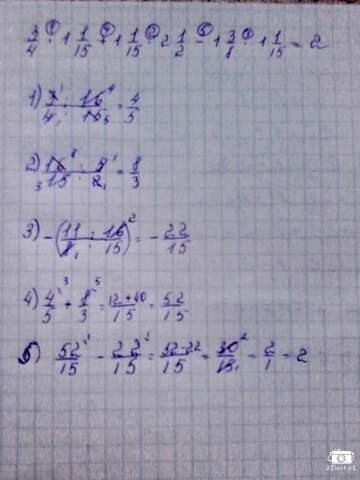 3/4 · 1 1/15 + 1 1/15 · 2 1/2 - 1 3/8 · 1 1/15 = 2
1) 3/4 · 16/15 = 4/5
2) 16/15 · 5/2 = 8/3
3) -(11/8 · 16/15) = -22/15
4) 4/5 + 8/3 = 12+40/15 = 52/15
5) 52/15 - 22/15 = 52-22/15 = 30/15 = 2/1 = 2